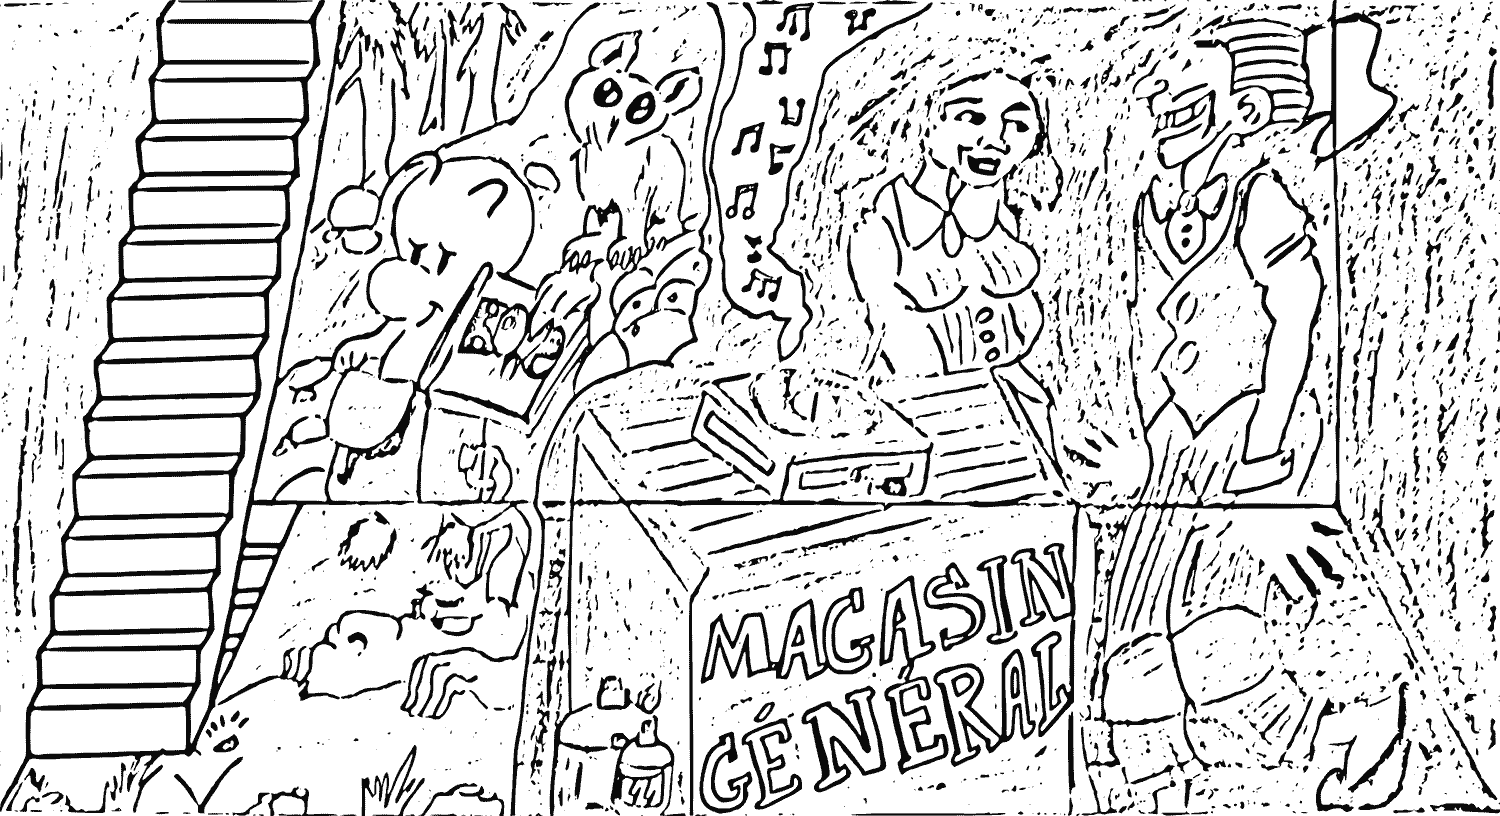 MAGASIN
GÉNÉRAL